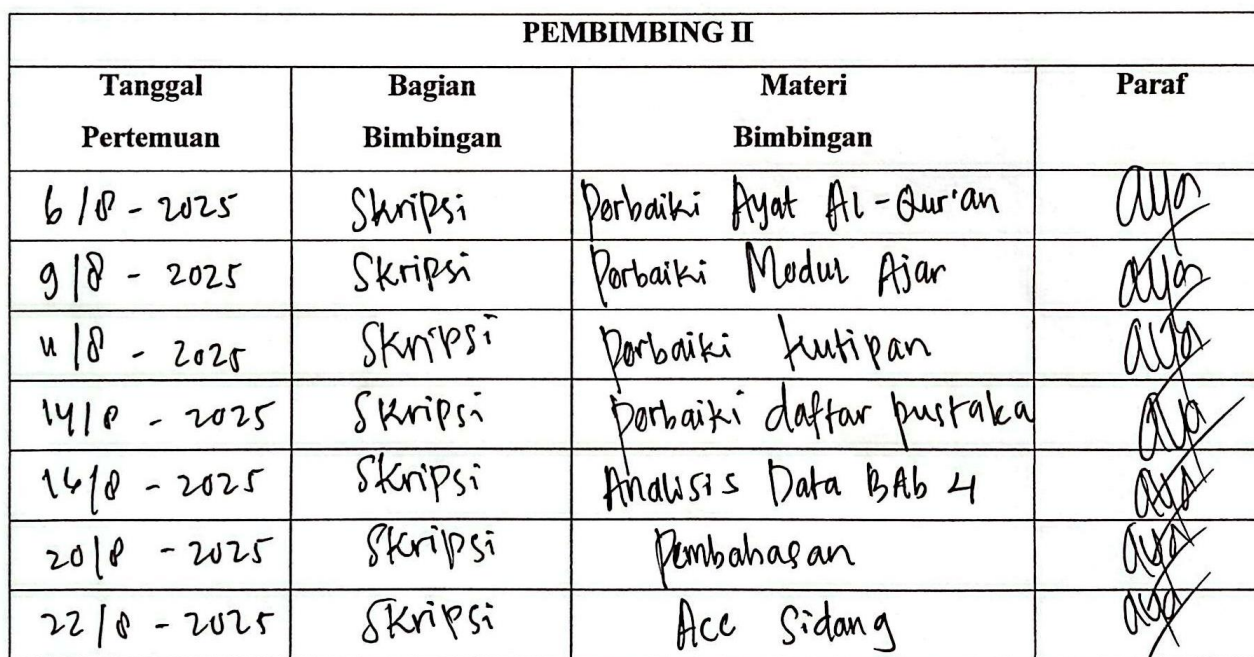 PEMBIMBING II
Tanggal Pertemuan Bagian Bimbingan Materi Bimbingan Paraf
6/8 - 2025 Skripsi Perbaiki Ayat Al-Qur'an
9/8 - 2025 Skripsi Perbaiki Modul Ajar
11/8 - 2025 Skripsi Perbaiki kutipan
14/8 - 2025 Skripsi Perbaiki daftar pustaka
/8 - 2025 Skripsi Analisis Data BAb 4
20/8 - 2025 Skripsi Pembahasan
22/8 - 2025 Skripsi Acc Sidang